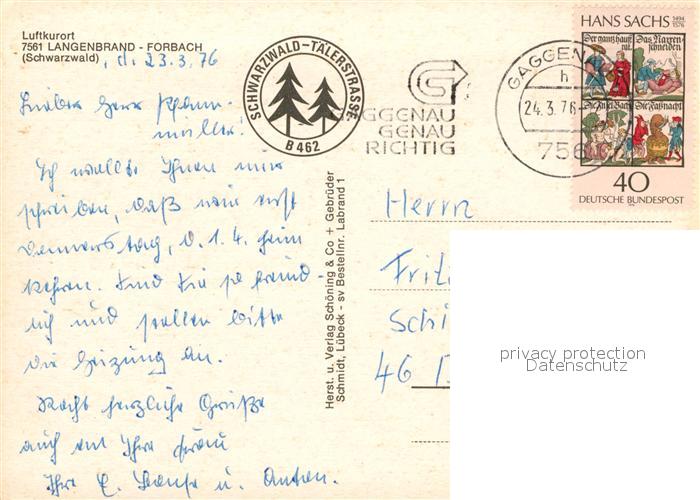 Luftkurort
7561 LANGENBRAND - FORBACH
(Schwarzwald)
, d. 23.3.76
Lieber Herr Pfann-
müller!
Ich wollte Ihnen nur
schreiben, daß wir erst
Donnerstag, d. 1.4. heim
kehren. Sind Sie so freund-
lich und stellen bitte
die Heizung an.
Recht herzliche Grüße
auch an Ihre Frau
Ihre E. u. Anton.
SCHWARZWALD-TÄLERSTRASSE
B 462
GAGGENAU
GENAU
RICHTIG
GAGGENAU
h
24.3.76
756
HANS SACHS 1494 1576
Der gantz hauß rat.
Das Narren schneiden
Die Faßnacht
40
DEUTSCHE BUNDESPOST
Herst. u. Verlag Schöning & Co + Gebrüder
Schmidt, Lübeck - sv Bestellnr. Labrand 1
Herrn
Fritz
Schi
46 D
privacy protection
Datenschutz